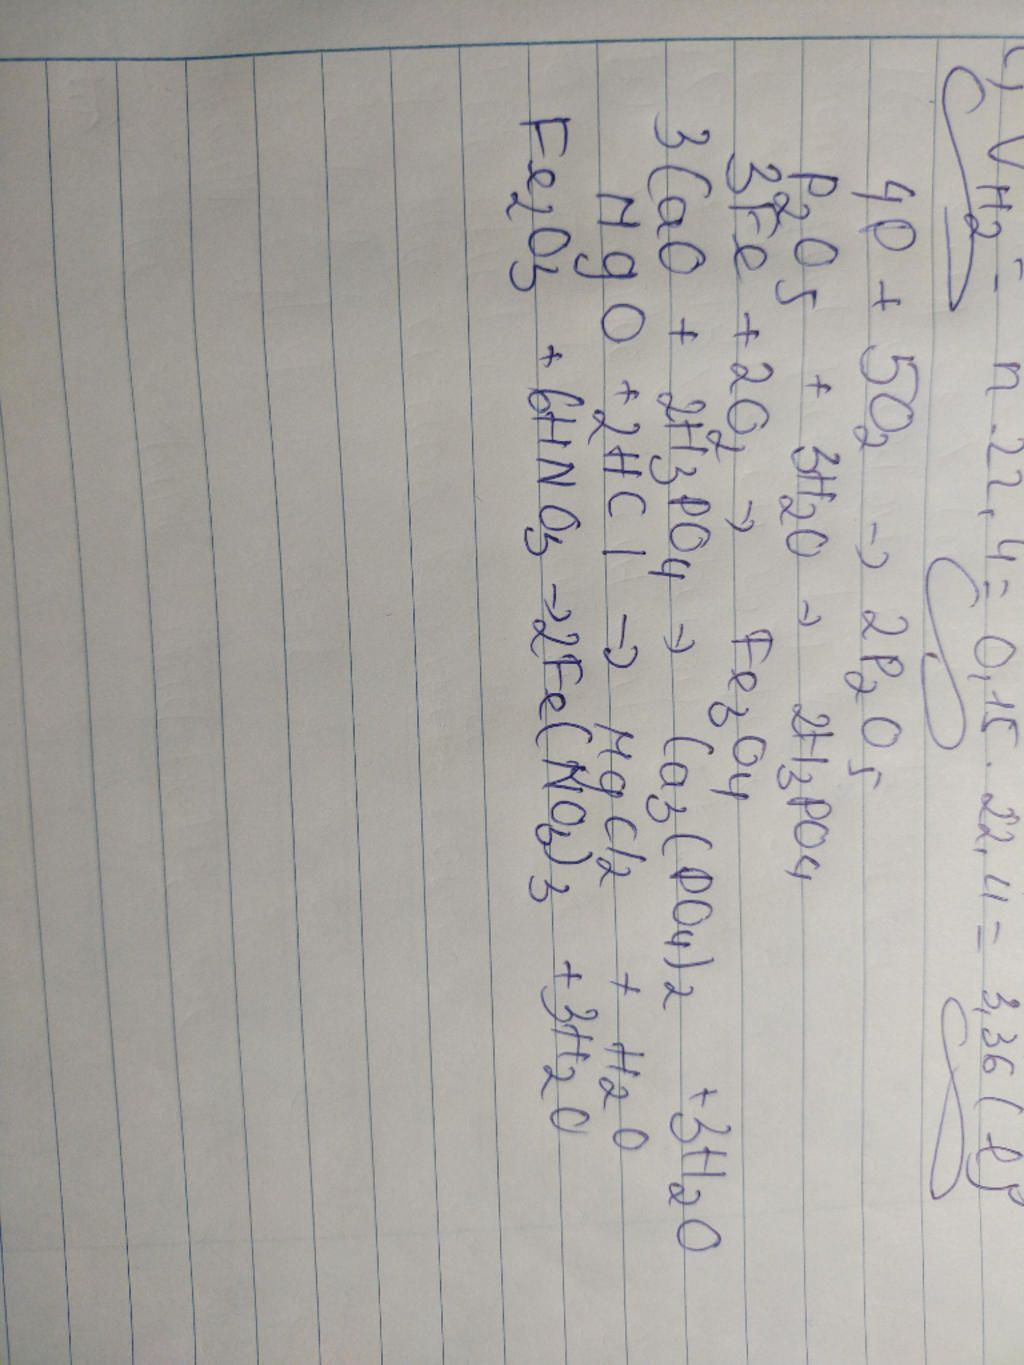 V H2 = n . 22,4 = 0,15 . 22,4 = 3,36 (l)
4P + 5O2 → 2P2O5
P2O5 + 3H2O → 2H3PO4
3Fe + 2O2 → Fe3O4
3CaO + 2H3PO4 → Ca3(PO4)2 + 3H2O
MgO + 2HCl → MgCl2 + H2O
Fe2O3 + 6HNO3 → 2Fe(NO3)3 + 3H2O